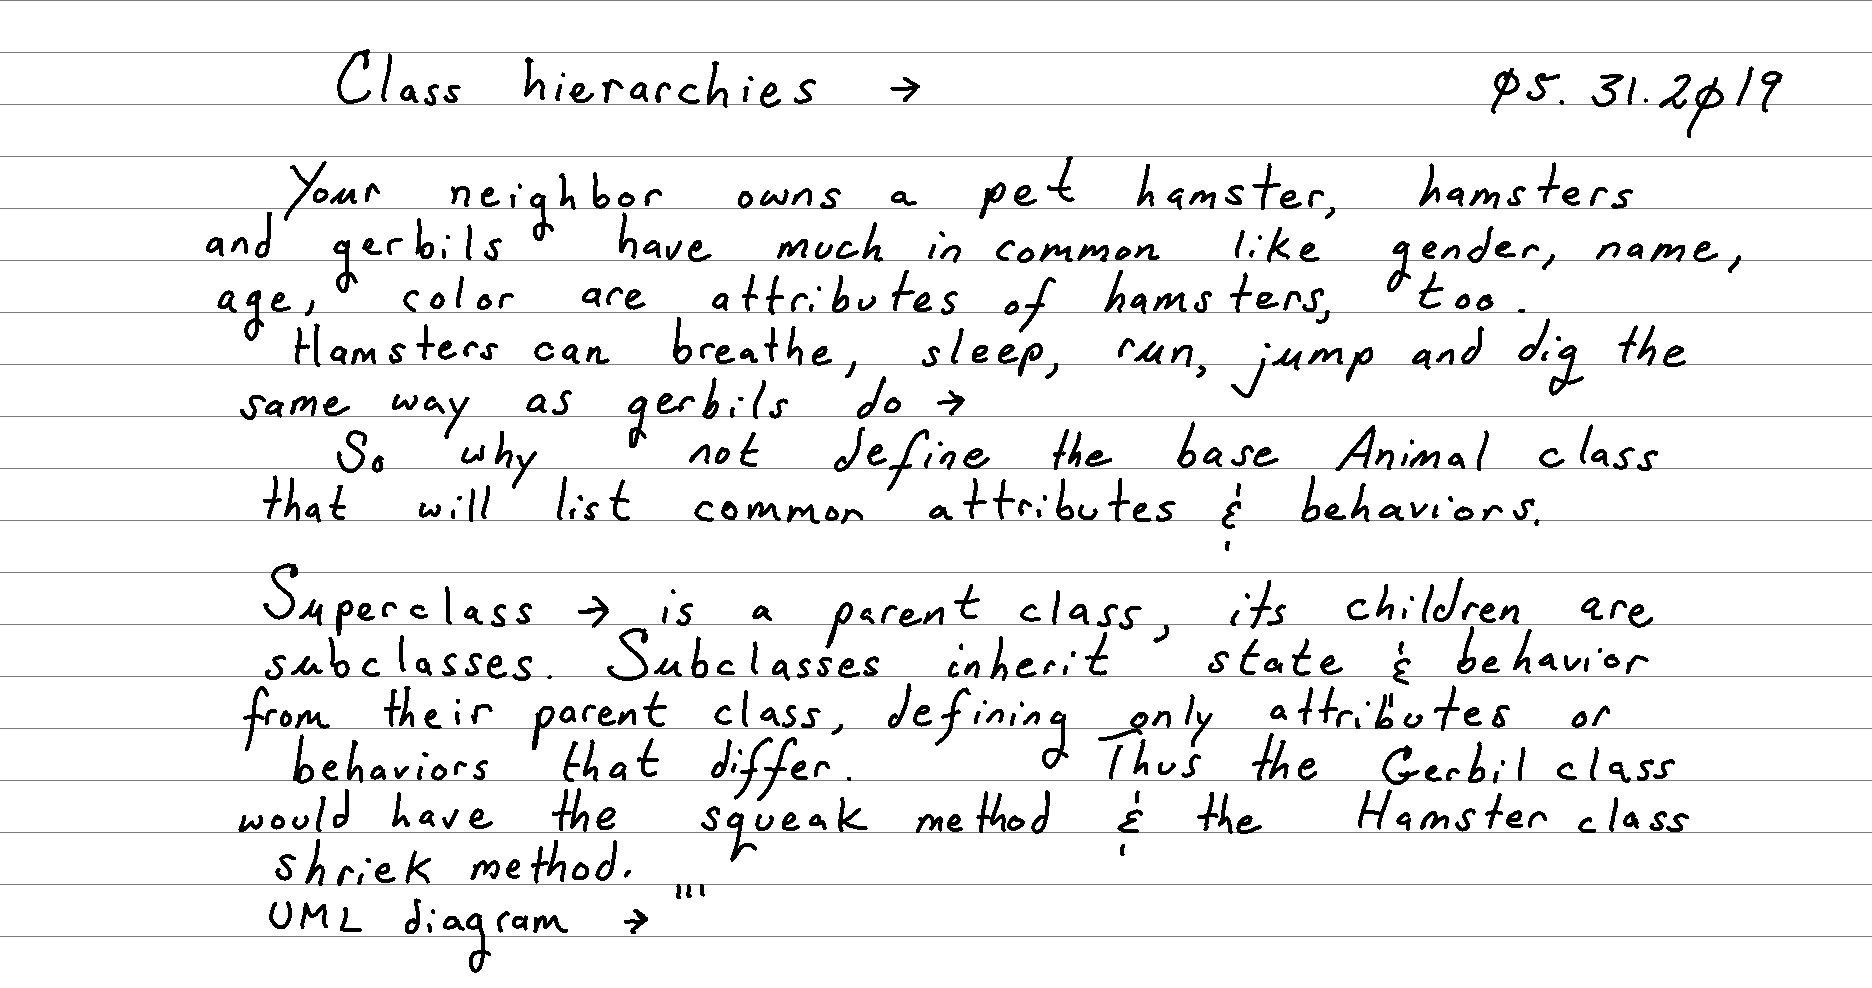 Class hierarchies → 05.31.2019
Your neighbor owns a pet hamster, hamsters
and gerbils have much in common like gender, name,
age, color are attributes of hamsters, too.
Hamsters can breathe, sleep, run, jump and dig the
same way as gerbils do →
So why not define the base Animal class
that will list common attributes & behaviors.
Superclass → is a parent class, its children are
subclasses. Subclasses inherit state & behavior
from their parent class, defining only attributes or
behaviors that differ. Thus the Gerbil class
would have the squeak method & the Hamster class
shriek method.
UML diagram →